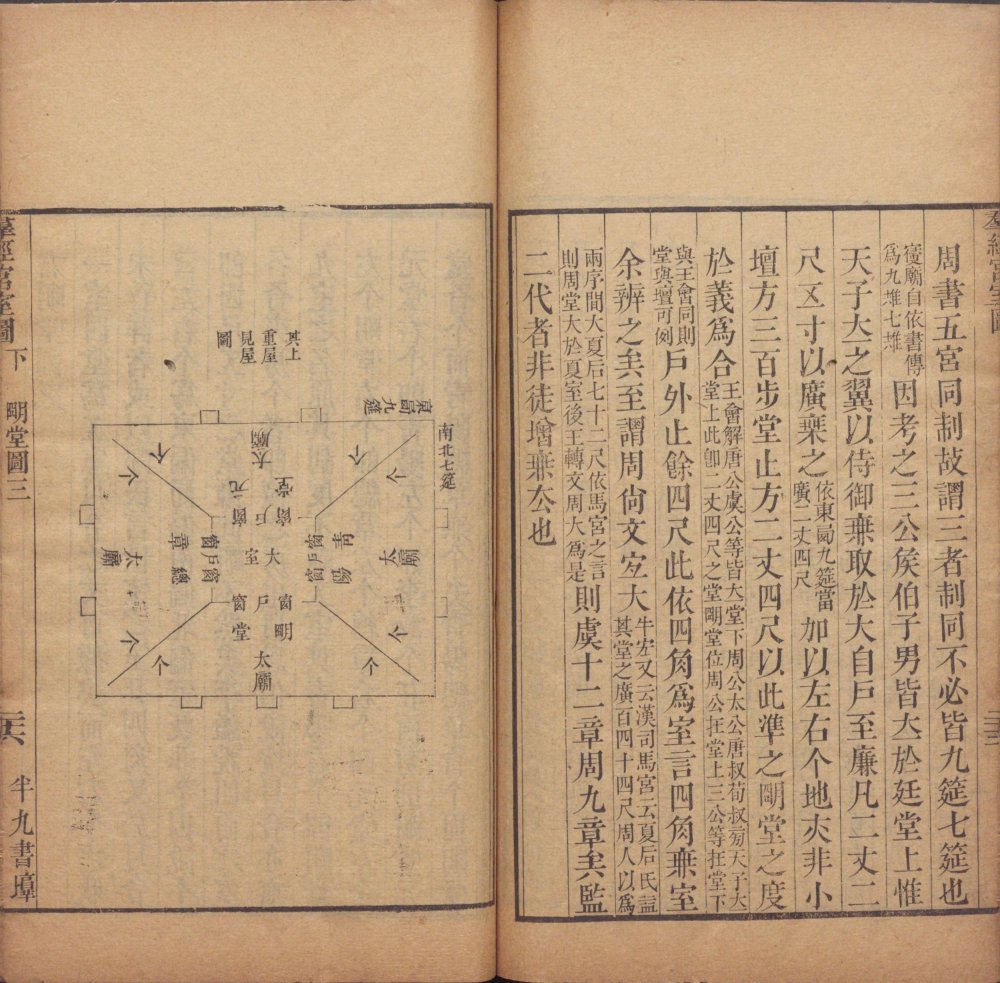 周書五宮同制故謂三者制同不必皆九筵七筵也
寑廟自依書傳
爲九雉七雉
因考之三公矦伯子男皆立於廷堂上惟
天子立之翼以侍御橆取於大自戶至廉凡二丈二
尺五寸以廣乘之
依東西九筵當
廣二丈四尺
加以左右个地亦非小
壇方三百步堂止方二丈四尺以此準之朙堂之度
於義爲合
王會解唐公虞公等皆立堂下周公太公唐叔荀叔㫄天子立
堂上此卽二丈四尺之堂朙堂位周公在堂上三公等在堂下
與王會同則
堂與壇可例
戶外止餘四尺此依四角爲室言四角橆室
余辨之矣至謂周尙文宐大
牛宏又云漢司馬宮云夏后氏益
其堂之廣百四十四尺周人以爲
兩序間大夏后七十二尺依馬宮之言
則周堂大於夏室後王轉文周大爲是
則虞十二章周九章矣監
二代者非徒增橆去也
羣經宮室圖
三三
其上
重屋
見屋
圖
東西九筵
南北七筵
太廟
元堂
窗戶窗
个
个
青陽
太廟
窗戶窗
个
个
大室
總章
太廟
窗戶窗
个
个
窗戶窗
朙堂
太廟
个
个
羣經宮室圖下 朙堂圖三
三六
半九書塾